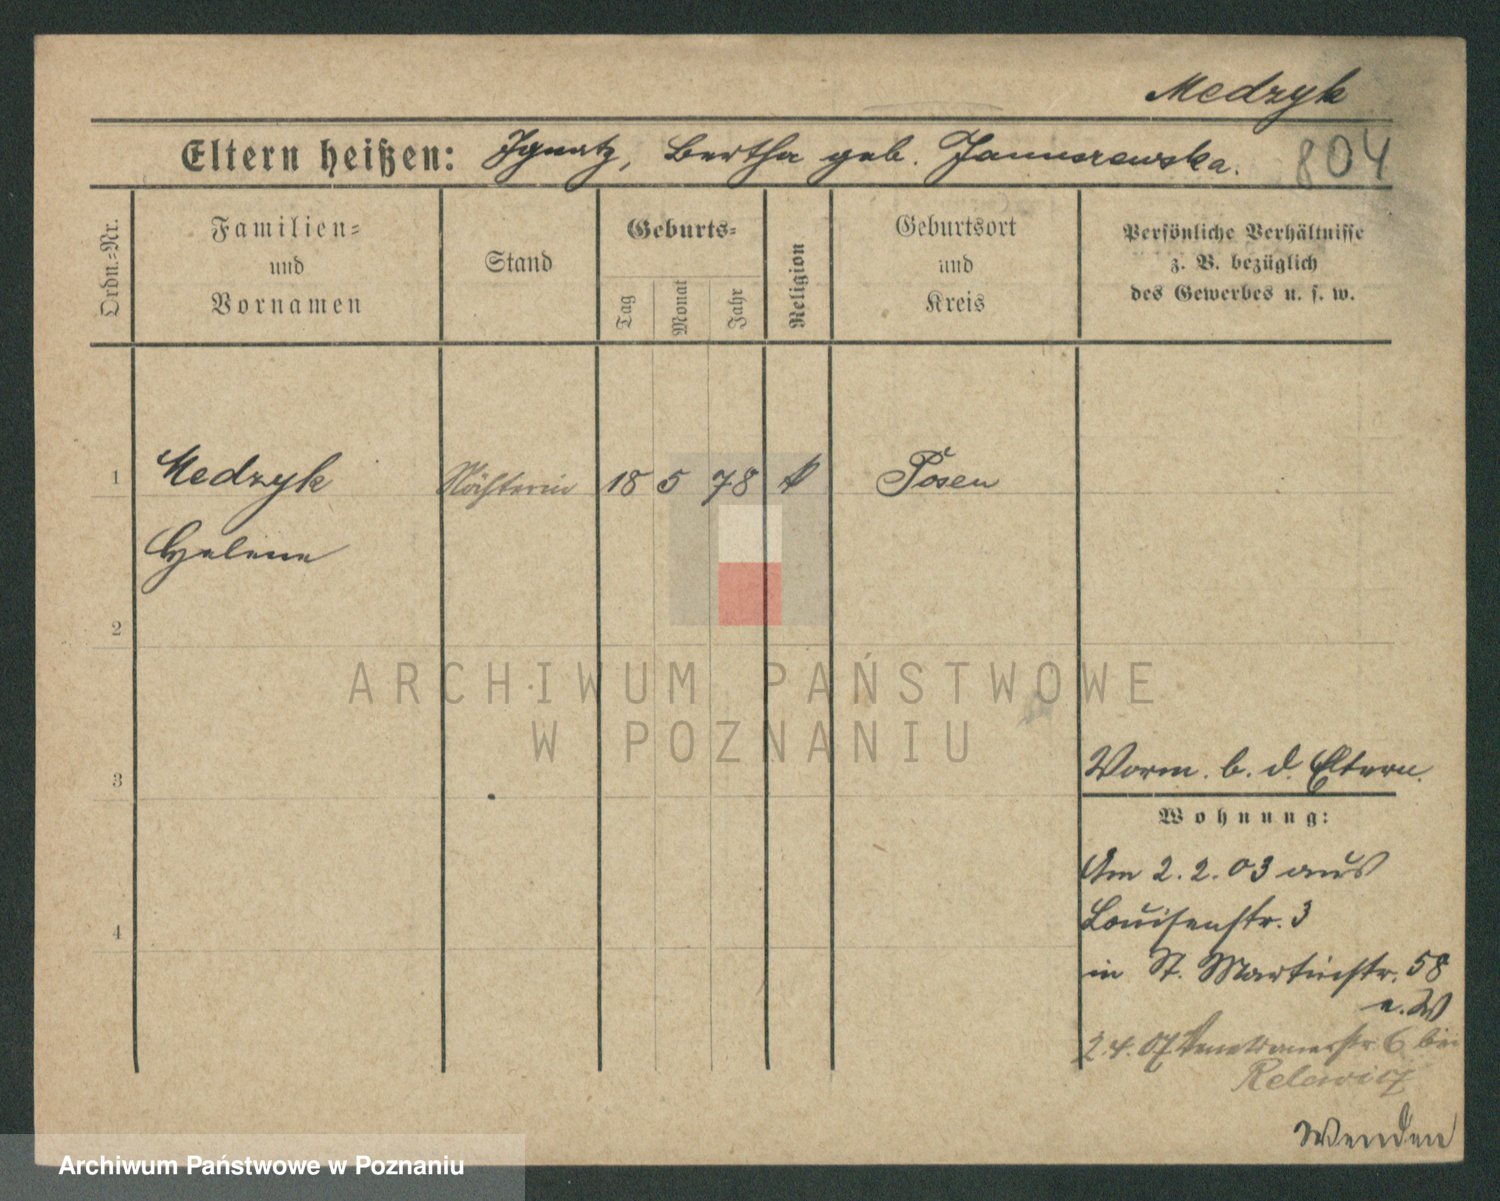 Medzyk
Eltern heißen: Ignatz, Bertha geb. Januszewska.
804
Ordn.-Nr.
Familien-
und
Vornamen
Stand
Geburts-
Tag
Monat
Jahr
Religion
Geburtsort
und
Kreis
Persönliche Verhältnisse
z. B. bezüglich
des Gewerbes u. s. w.
1
Medzyk
Nähterin
18 5 78 k
Posen
Helene
2
ARCHIWUM PAŃSTWOWE
W POZNANIU
3
Vorm. b. d. Eltern.
Wohnung:
Am 2. 2. 03 aus
Louisenstr. 3
4
in St. Martinstr. 58
e. W
2.4.07 Venetianerstr 6 bei
Wenden
Archiwum Państwowe w Poznaniu